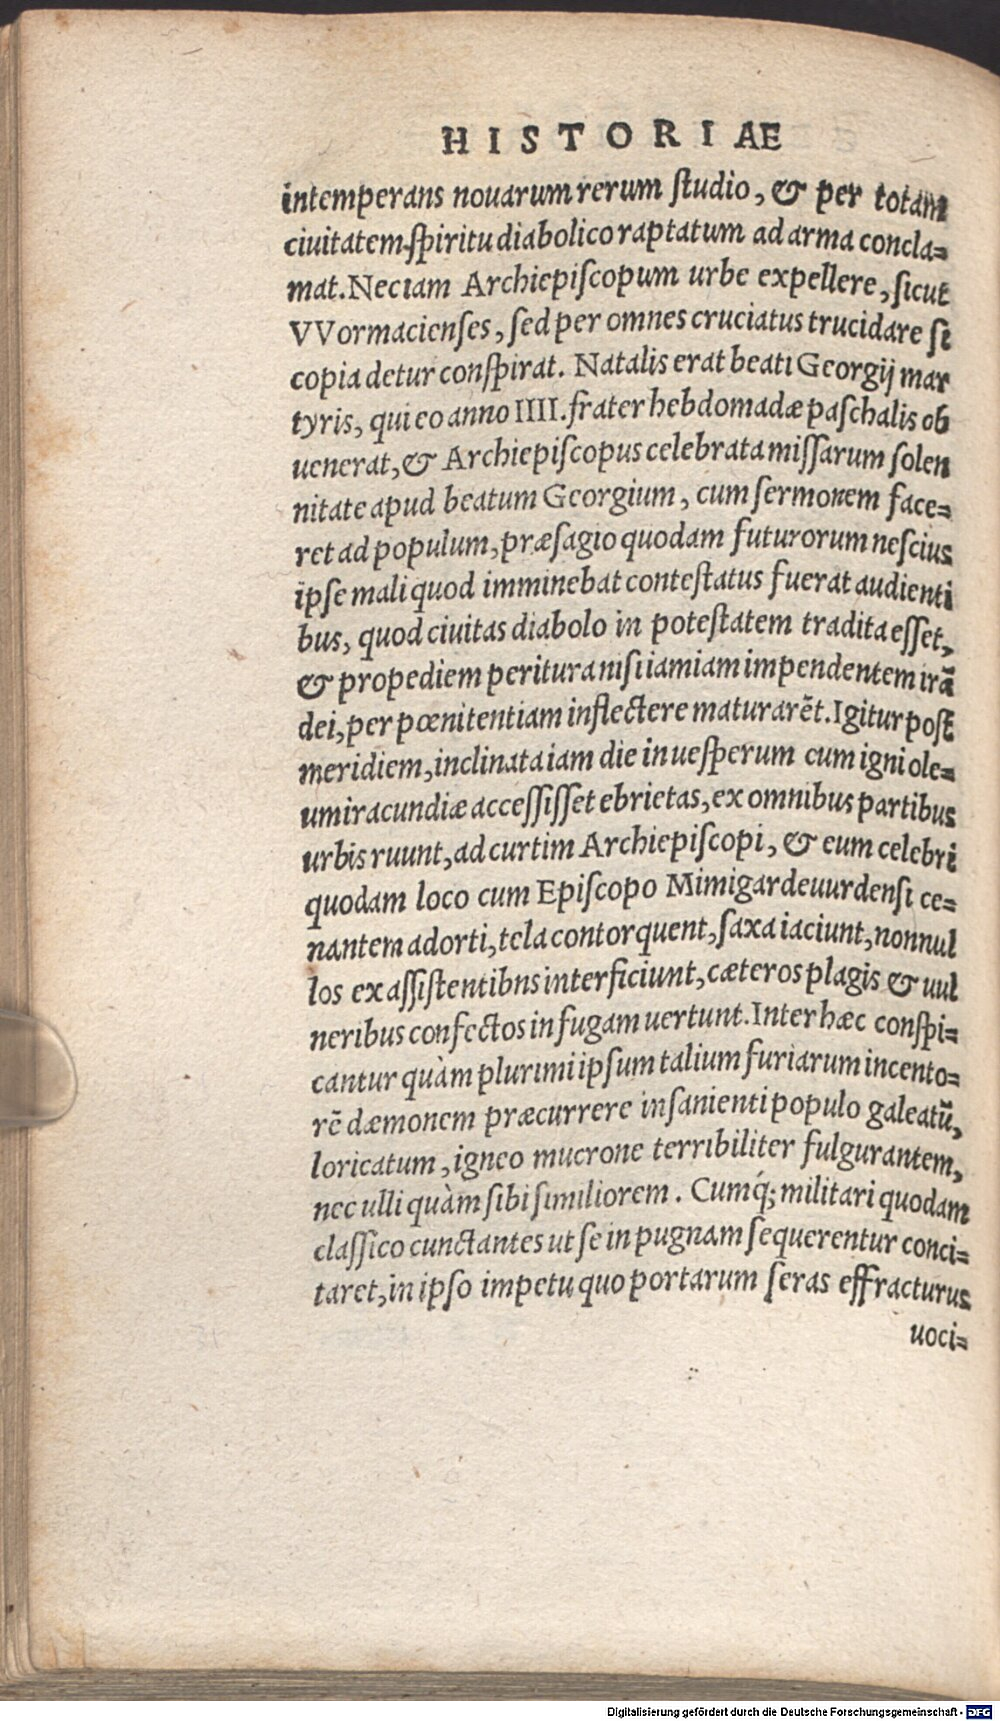 HISTORIAE
intemperans nouarum rerum studio, & per totam
ciuitatem spiritu diabolico raptatum ad arma concla=
mat. Nec iam Archiepiscopum urbe expellere, sicut
VVormacienses, sed per omnes cruciatus trucidare si
copia detur conspirat. Natalis erat beati Georgij mar
tyris, qui eo anno IIII. frater hebdomadæ paschalis ob
uenerat, & Archiepiscopus celebrata missarum solen
nitate apud beatum Georgium, cum sermonem face=
ret ad populum, præsagio quodam futurorum nescius
ipse mali quod imminebat contestatus fuerat audienti
bus, quod ciuitas diabolo in potestatem tradita esset,
& propediem peritura nisi iamiam impendentem irã
dei, per pœnitentiam inflectere maturarẽt. Igitur post
meridiem, inclinata iam die in uesperum cum igni ole=
um iracundiæ accessisset ebrietas, ex omnibus partibus
urbis ruunt, ad curtim Archiepiscopi, & eum celebri
quodam loco cum Episcopo Mimigardeuurdensi ce=
nantem adorti, tela contorquent, saxa iaciunt, nonnul
los ex assistentibns interficiunt, cæteros plagis & uul
neribus confectos in fugam uertunt. Inter hæc conspi=
cantur quàm plurimi ipsum talium furiarum incento=
rẽ dæmonem præcurrere insanienti populo galeatũ,
loricatum, igneo mucrone terribiliter fulgurantem,
nec ulli quàm sibi similiorem. Cumq́; militari quodam
classico cunctantes ut se in pugnam sequerentur conci=
taret, in ipso impetu quo portarum seras effracturus
uoci=
Digitalisierung gefördert durch die Deutsche Forschungsgemeinschaft - DFG